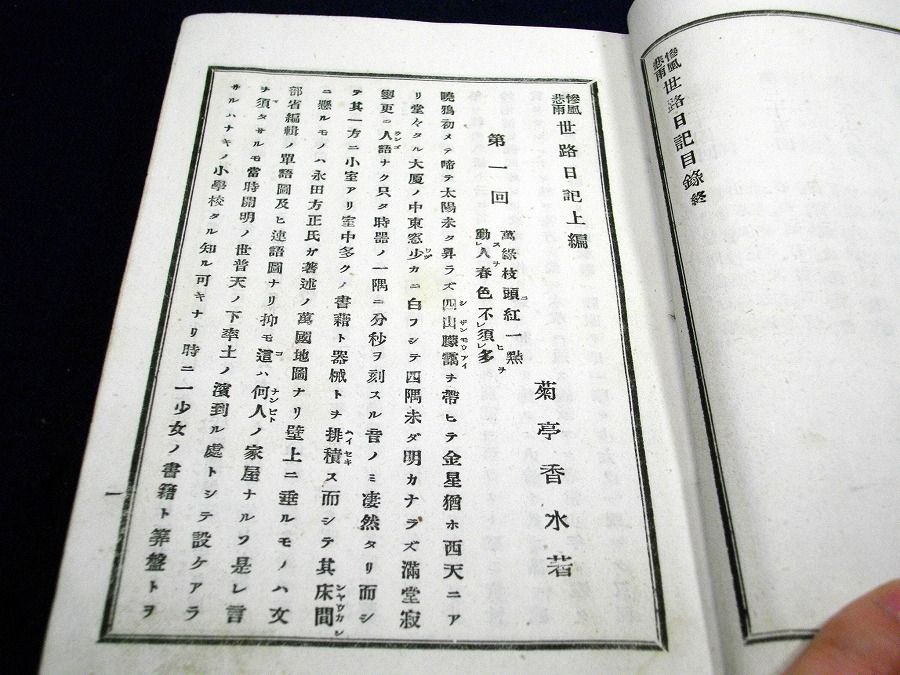 慘風悲雨世路日記目錄終
慘風悲雨世路日記上編
菊亭香水著
第一回
萬綠枝頭紅一點
動人春色不須多
曉鴉初メテ啼テ太陽未タ昇ラズ四山朦靄ヲ帶ヒテ金星猶ホ西天ニア
リ堂々タル大厦ノ中東窓少カニ白フシテ四隅未ダ明カナラズ滿堂寂
寥更ニ人語ナク只タ時器ノ一隅ニ分秒ヲ刻スル音ノミ凄然タリ而シ
テ其一方ニ小室アリ室中多クノ書籍ト器械トヲ排積ス而シテ其床間
ニ懸ルモノハ永田方正氏ガ著述ノ萬國地圖ナリ壁上ニ垂ルモノハ文
部省編輯ノ單語圖及ヒ連語圖ナリ抑モ這ハ何人ノ家屋ナルヿ是レ言
ヲ須タサルモ當時開明ノ世普天ノ下率土ノ濱到ル處トシテ設ケアラ
サルハナキノ小學校タル知ル可キナリ時ニ一少女ノ書籍ト筭盤トヲ
一